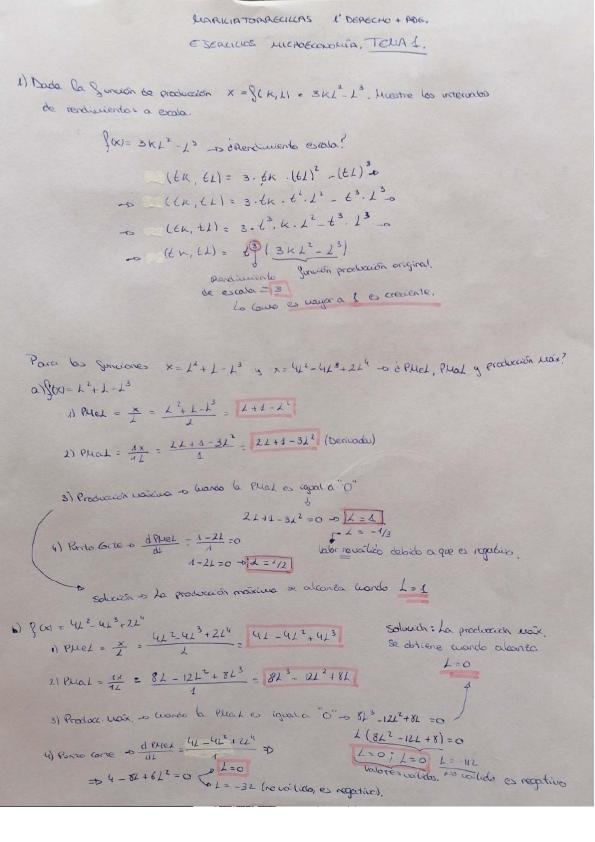 MARILIA TORRECILLAS 1º DERECHO + ADE.
EJERCICIOS MICROECONOMÍA. TEMA 1.
1) Dada la función de producción x = f(K,L) = 3KL² - L³. Muestre los intervalos
de rendimientos a escala.
f(x) = 3KL² - L³ → ¿Rendimiento escala?
(tK, tL) = 3·tK·(tL)² - (tL)³ →
→ (tK, tL) = 3·tK·t²·L² - t³·L³ →
→ (tK, tL) = 3·t³·K·L² - t³·L³ →
→ (tK, tL) = t³ (3KL² - L³)
Rendimiento función producción original.
de escala = 3
↳ como es mayor a 1 es creciente.
Para las funciones x = L² + L - L³ y x = 4L² - 4L³ + 2L⁴ → ¿PMeL, PMaL y producción máx?
a) f(x) = L² + L - L³
1) PMeL = x/L = L² + L - L³/L = L + 1 - L²
2) PMaL = 1x/1L = 2L + 1 - 3L²/1 = 2L + 1 - 3L² (Derivada)
3) Producción máxima → Cuando la PMaL es igual a "0"
2L + 1 - 3L² = 0 → L = 1
→ L = -1/3
Valor no válido debido a que es negativo.
4) Punto Corte → dPMeL/dL = 1 - 2L/1 = 0
1 - 2L = 0 → L = 1/2
Solución → La producción máxima se alcanza cuando L = 1
b) f(x) = 4L² - 4L³ + 2L⁴
1) PMeL = x/L = 4L² - 4L³ + 2L⁴/L = 4L - 4L² + 4L³
2) PMaL = 1x/1L = 8L - 12L² + 8L³/1 = 8L³ - 12L² + 8L
3) Producc. Máx. → Cuando la PMaL es igual a "0" → 8L³ - 12L² + 8L = 0
L(8L² - 12L + 8) = 0
L = 0 ; L = 0 L = -1/2
Valores válidos. no válido es negativo
Solución: La producción máx.
se obtiene cuando alcanza
L = 0
4) Punto Corte → dPMeL/dL = 4L - 4L² + 2L⁴/1 ⇒
⇒ 4 - 8L + 6L² = 0 L = 0
L = -32 (no válida, es negativo).